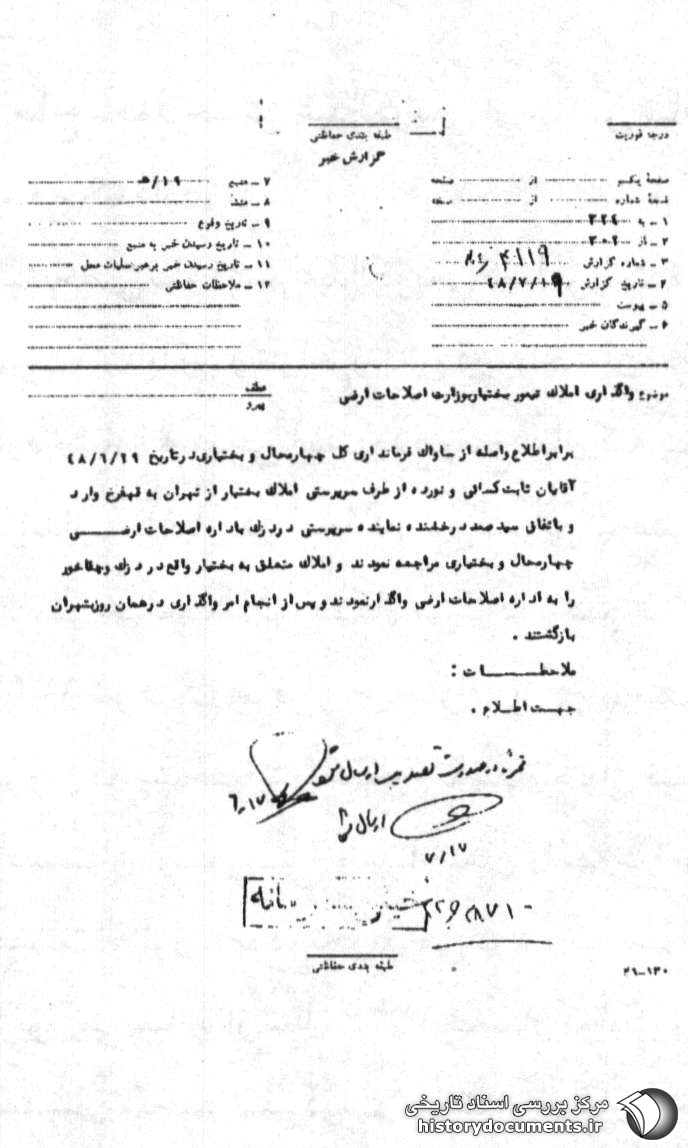 درجه فوریت
طبقه بندی حفاظتی
گزارش خبر
صفحهٔ یکم از صفحه
نسخهٔ شماره از نسخه
۱ – به ۳۲۴
۲ – از ۳۰۲
۳ – شماره گزارش ۴۱۱۹
۴ – تاریخ گزارش ۴۸/۷/۱۶
۵ – پیوست
۶ – گیرندگان خبر
۷ – منبع ۱۹/ه
۸ – منشأ
۹ – تاریخ وقوع
۱۰ – تاریخ رسیدن خبر به منبع
۱۱ – تاریخ رسیدن خبر برهبر عملیات محل
۱۲ – ملاحظات حفاظتی
موضوع واگذاری املاک تیمور بختیار بوزارت اصلاحات ارضی
عطف
پیرو
برابر اطلاع واصله از ساواک فرمانداری کل چهارمحال و بختیاری در تاریخ ۴۸/۶/۲۹
آقایان ثابت کدائی و نورده از طرف سرپرستی املاک بختیار از تهران به قهفرخ وارد
و باتفاق سید صمد رخشنده نماینده سرپرستی در دزک باداره اصلاحات ارضی
چهارمحال و بختیاری مراجعه نمودند و املاک متعلق به بختیار واقع در دزک وچغاخور
را به اداره اصلاحات ارضی واگذار نمودند و پس از انجام امر واگذاری در همان روز بتهران
بازگشتند .
ملاحظات :
جهت اطلاع .
در صورت تصویب ارسال شود
۷/۱۷
ارسال شود
۷/۱۷
۴۸۷۱۰
طبقه بندی حفاظتی
۲۱–۱۳۰
مرکز بررسی اسناد تاریخی
historydocuments.ir